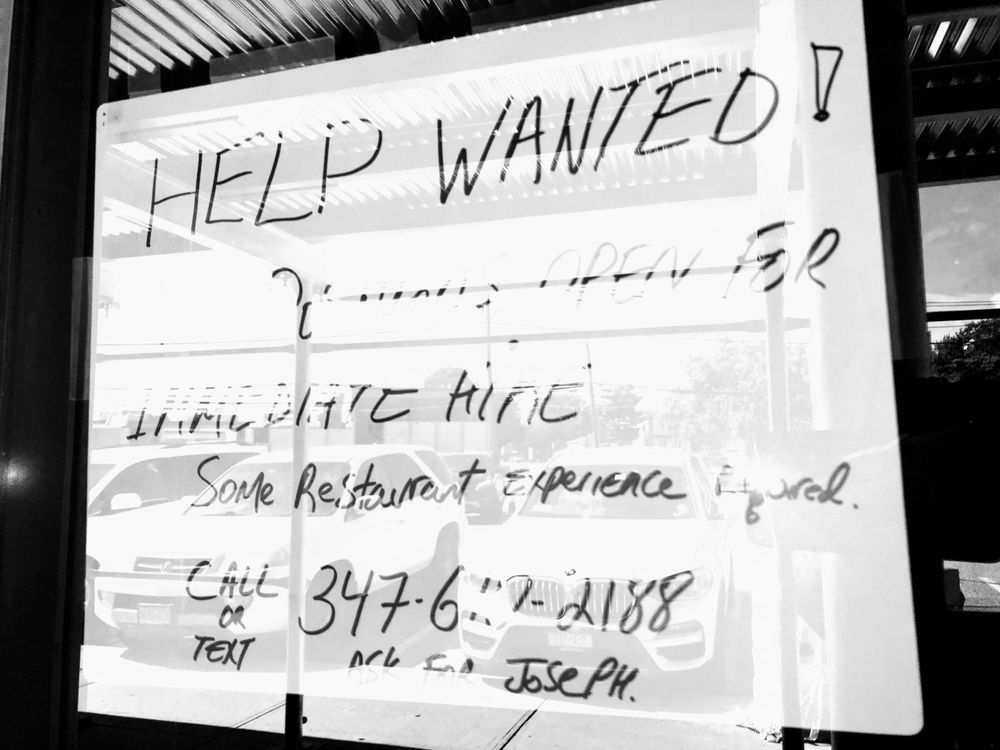 HELP WANTED!
OPEN FOR
IMMEDIATE HIRE
Some Restaurant Experience
CALL OR TEXT 347-6
-2188
ASK FOR JOSEPH.